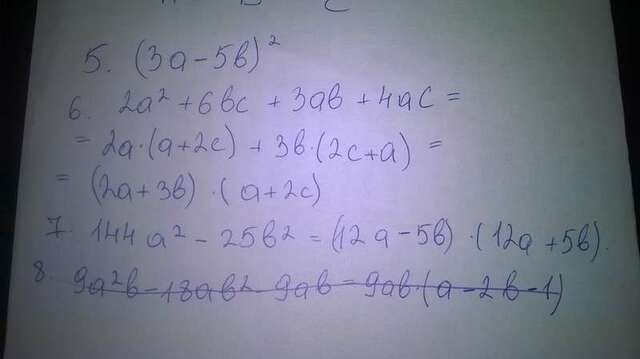 5. (3a-5в)²
6. 2a² + 6вc + 3aв + 4ac =
= 2a·(a+2c) + 3в·(2c+a) =
= (2a+3в) · (a+2c)
7. 144a² - 25в² = (12a-5в) · (12a+5в).
8. 9a²в-18aв²-9aв = 9aв·(a-2в-1)